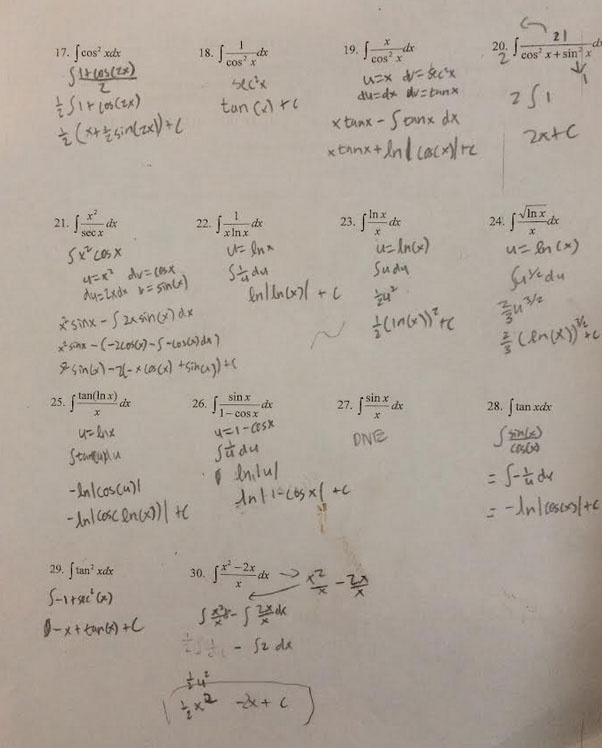 17. ∫cos² xdx
∫ 1+cos(2x) / 2
½ ∫ 1 + cos(2x)
½ (x+½ sin(2x))+C
18. ∫ 1/cos² x dx
sec²x
tan(x) + C
19. ∫ x/cos² x dx
u=x dv=sec²x
du=dx dv=tanx
x tanx - ∫ tanx dx
x tanx + ln|cos(x)|+C
20. ∫ 21/cos² x + sin² x dx
2
2 ∫ 1
2x+C
21. ∫ x²/sec x dx
∫ x² cosx
u=x² dv=cosx
du=2xdx v=sin(x)
x² sinx - ∫ 2x sin(x) dx
22. ∫ 1/x ln x dx
u=lnx
∫ 1/u du
ln|ln(x)| + C
23. ∫ ln x/x dx
u=ln(x)
∫ u du
½u²
½(ln(x))²+C
24. ∫ √ln x/x dx
u=ln(x)
∫ u^1/2 du
⅔ u^3/2
⅔ (ln(x))^3/2 +C
25. ∫ tan(ln x)/x dx
u=lnx
∫ tan(u)du
-ln|cos(u)|
-ln|cos(ln(x))| +C
26. ∫ sin x/1-cos x dx
u=1-cosx
∫ 1/u du
ln|u|
ln|1-cosx| +C
27. ∫ sin x/x dx
DNE
28. ∫ tan xdx
∫ sin(x)/cos(x)
= ∫ -1/u du
= -ln|cos(x)|+C
29. ∫ tan² xdx
∫ -1+sec²(x)
-x+tan(x)+C
30. ∫ x² - 2x/x dx → x²/x - 2x/x
∫ x²/x - ∫ 2x/x dx
- ∫ 2 dx
½u²
½x² -2x + C